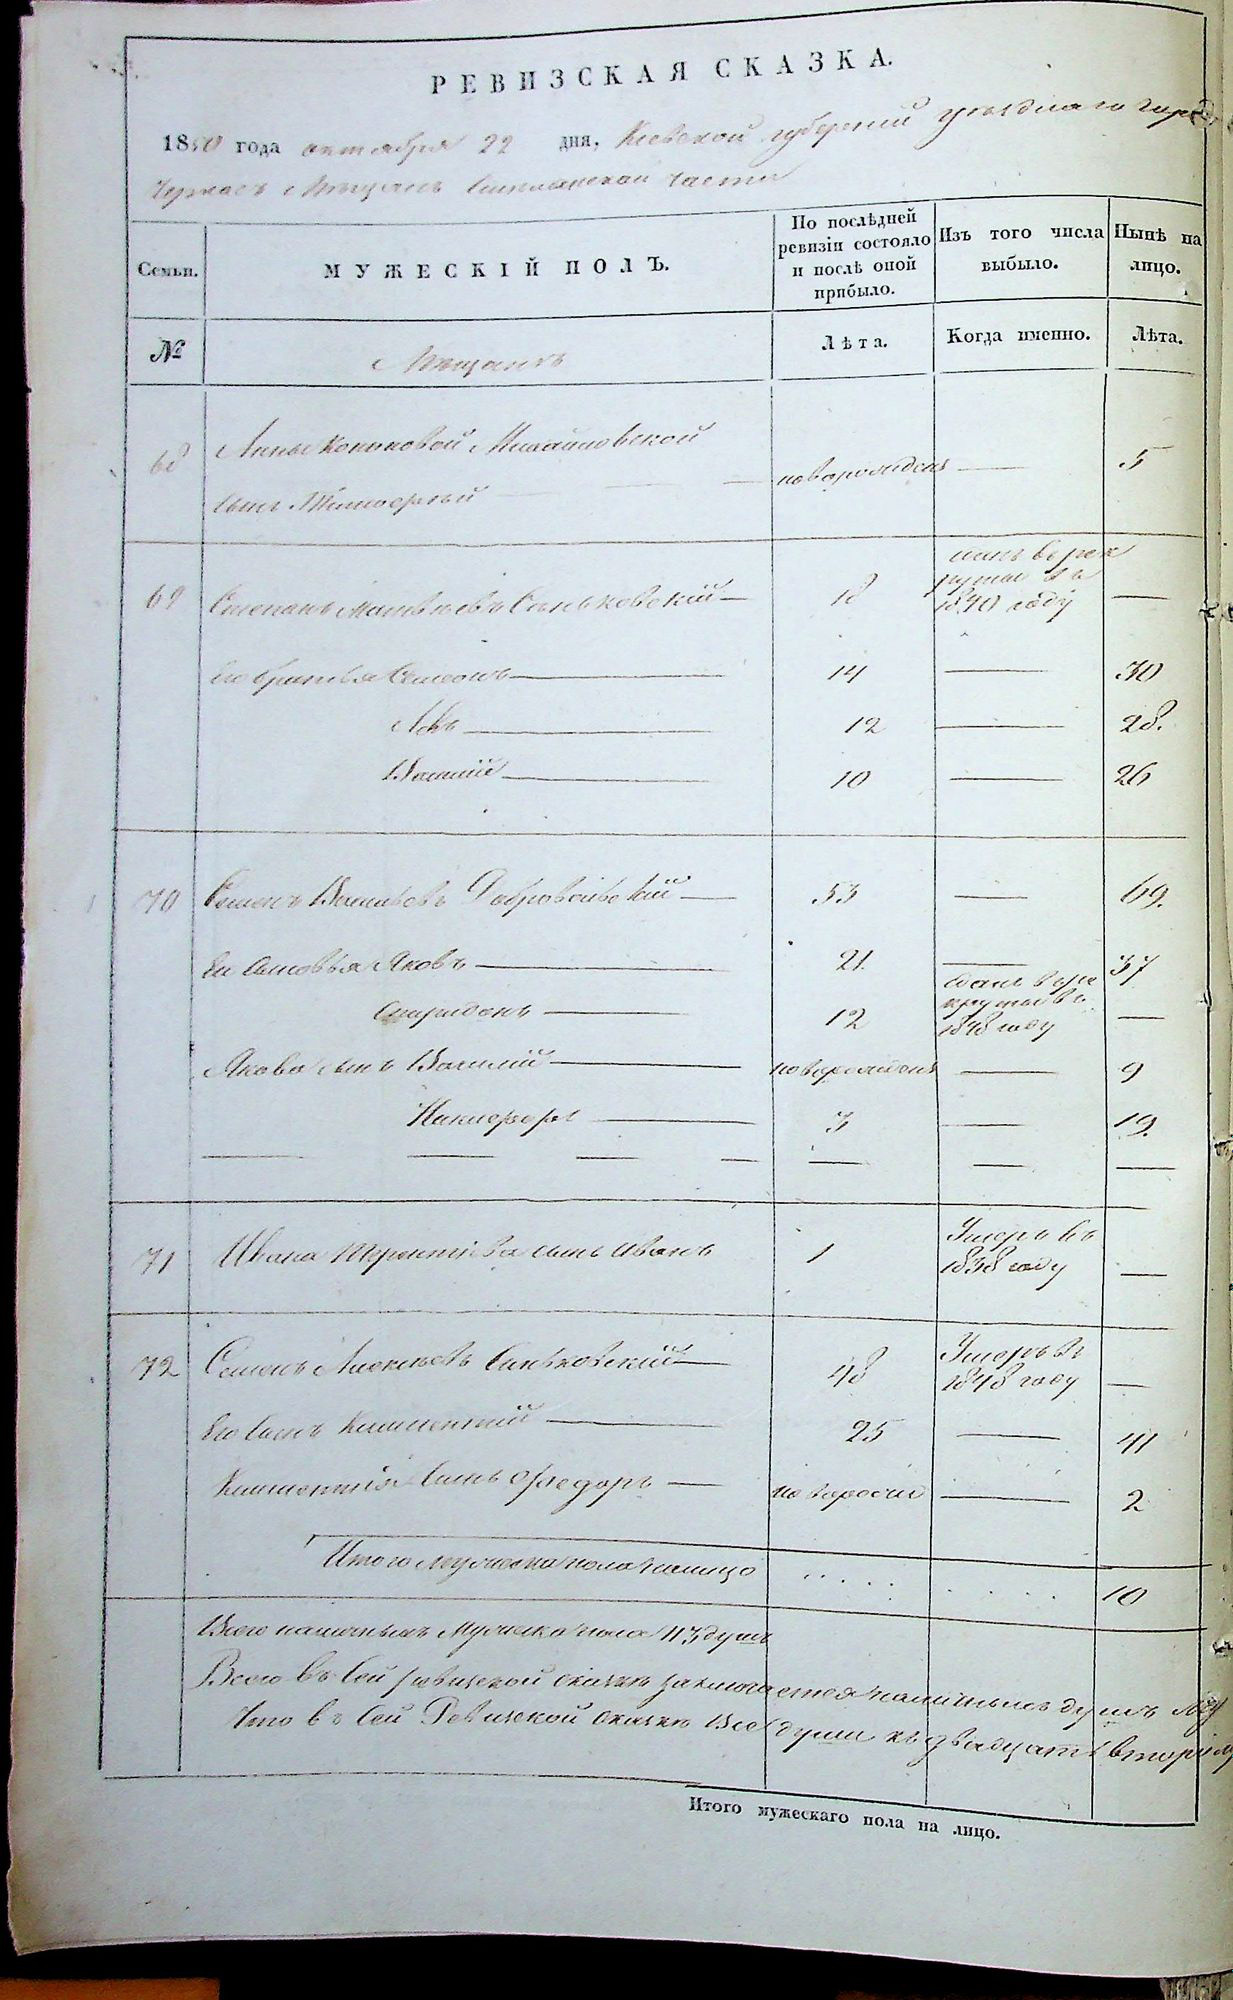 РЕВИЗСКАЯ СКАЗКА.
1850 года октября 22 дня, Киевской губернии уезднаго города
Черкасъ Мещанъ части
Семьи.
МУЖЕСКІЙ ПОЛЪ.
По послѣдней ревизіи состояло и послѣ оной прибыло.
Изъ того числа выбыло.
Нынѣ на лицо.
№
Мещанъ
Лѣта.
Когда именно.
Лѣта.
68 Анны Михайловской
сынъ новорожденъ — 5
69 Степанъ Матвѣевъ Сеньковскій — 18 рекруты въ 1840 году —
Его братья Семенъ — 14 — 30
12 — 28.
Василій — 10 — 26
70 Семенъ Васильевъ Добровольскій — 53 — 69.
Его сыновья Яковъ — 21 — 37
Спиридонъ — 12 сданъ въ рекруты въ 1848 году —
Якова сынъ Василій — новорожденъ — 9
Никифоръ — 3 — 19.
71 Ивана Терентіева сынъ Иванъ 1 Умеръ въ 1838 году —
72 Семенъ Алексѣевъ Сеньковскій — 48 Умеръ въ 1848 году —
Его сынъ Климентій — 25 — 41
Климентія сынъ Федоръ — — 2
Итого мужеска пола налицо . . . . . . . . . . 10
Всего наличныхъ мужеска пола 113 душъ
Всего въ сей ревизской сказкѣ заключается наличныхъ душъ
Что въ сей Ревизской сказкѣ все души къ двадцать второму
Итого мужескаго пола на лицо.